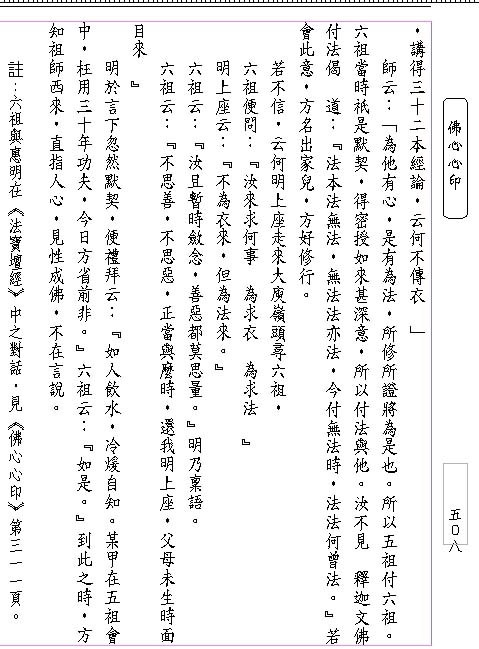 佛心心印
五0八
・講得三十二本經論・云何不傳衣 」
師云：「為他有心・是有為法・所修所證將為是也。所以五祖付六祖。
六祖當時祇是默契・得密授如來甚深意・所以付法與他。汝不見 釋迦文佛
付法偈 道：『法本法無法・無法法亦法・今付無法時・法法何曾法。』若
會此意・方名出家兒・方好修行。
若不信・云何明上座走來大庾嶺頭尋六祖・
六祖便問：『汝來求何事 為求衣 為求法 』
明上座云：『不為衣來・但為法來。』
六祖云：『汝且暫時斂念・善惡都莫思量。』明乃稟語。
六祖云：『不思善・不思惡・正當與麼時・還我明上座・父母未生時面
目來 』
明於言下忽然默契・便禮拜云：『如人飲水・冷煖自知。某甲在五祖會
中・枉用三十年功夫・今日方省前非。』六祖云：『如是。』到此之時・方
知祖師西來・直指人心・見性成佛・不在言說。
註：六祖與惠明在《法寶壇經》中之對話・見《佛心心印》第三一一頁。